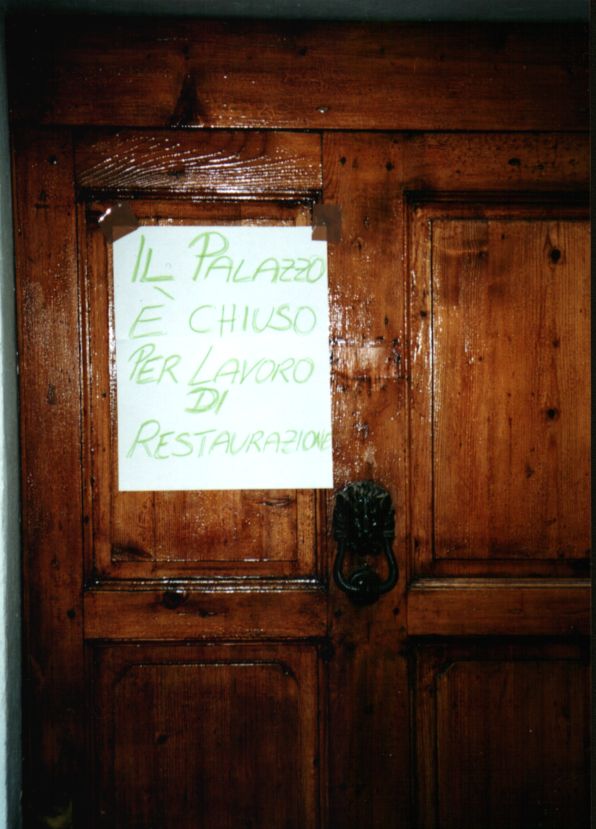 IL PALAZZO
È CHIUSO
PER LAVORO
DI
RESTAURAZIONE